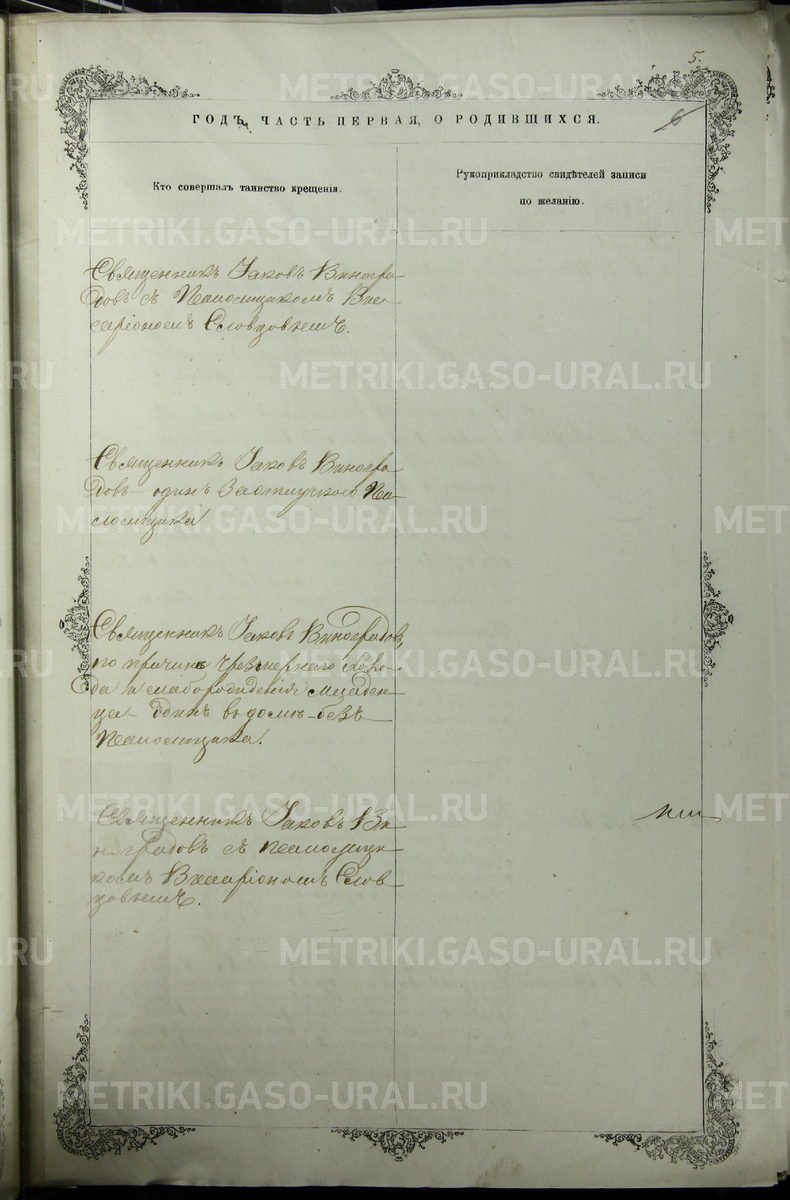 5.
6
ГОДЪ, ЧАСТЬ ПЕРВАЯ, О РОДИВШИХСЯ.
Кто совершалъ таинство крещенія.
Рукоприкладство свидѣтелей записи
по желанію.
Священникъ Іаковъ Виногра-
довъ съ Псаломщикомъ Вис-
саріономъ Словцовымъ.
Священникъ Іаковъ Виногра-
довъ один За отлучкою Пса-
ломщика
Священникъ Іаковъ Виноградовъ,
по причинѣ чрезмернаго холо-
да и слаборожденія младен-
ца одинъ въ домѣ безъ
Псаломщика.
Священникъ Іаковъ Ви
ноградовъ съ псаломщи-
комъ Виссаріономъ Слов-
цовымъ.
METRIKI.GASO-URAL.RU